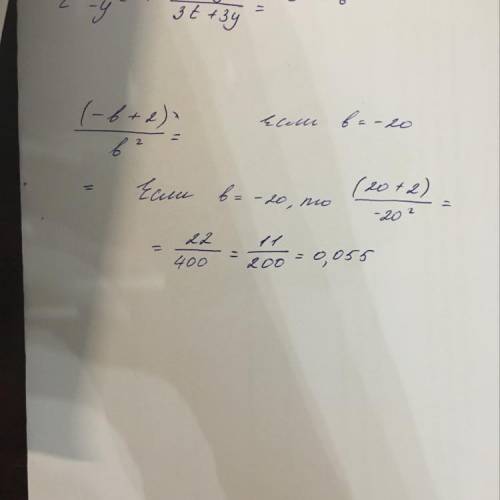 -y
3t+3y =
(-b+2)
b² =
Если b = -20
= Если b = -20, то (20+2) / -20² =
= 22/400 = 11/200 = 0,055